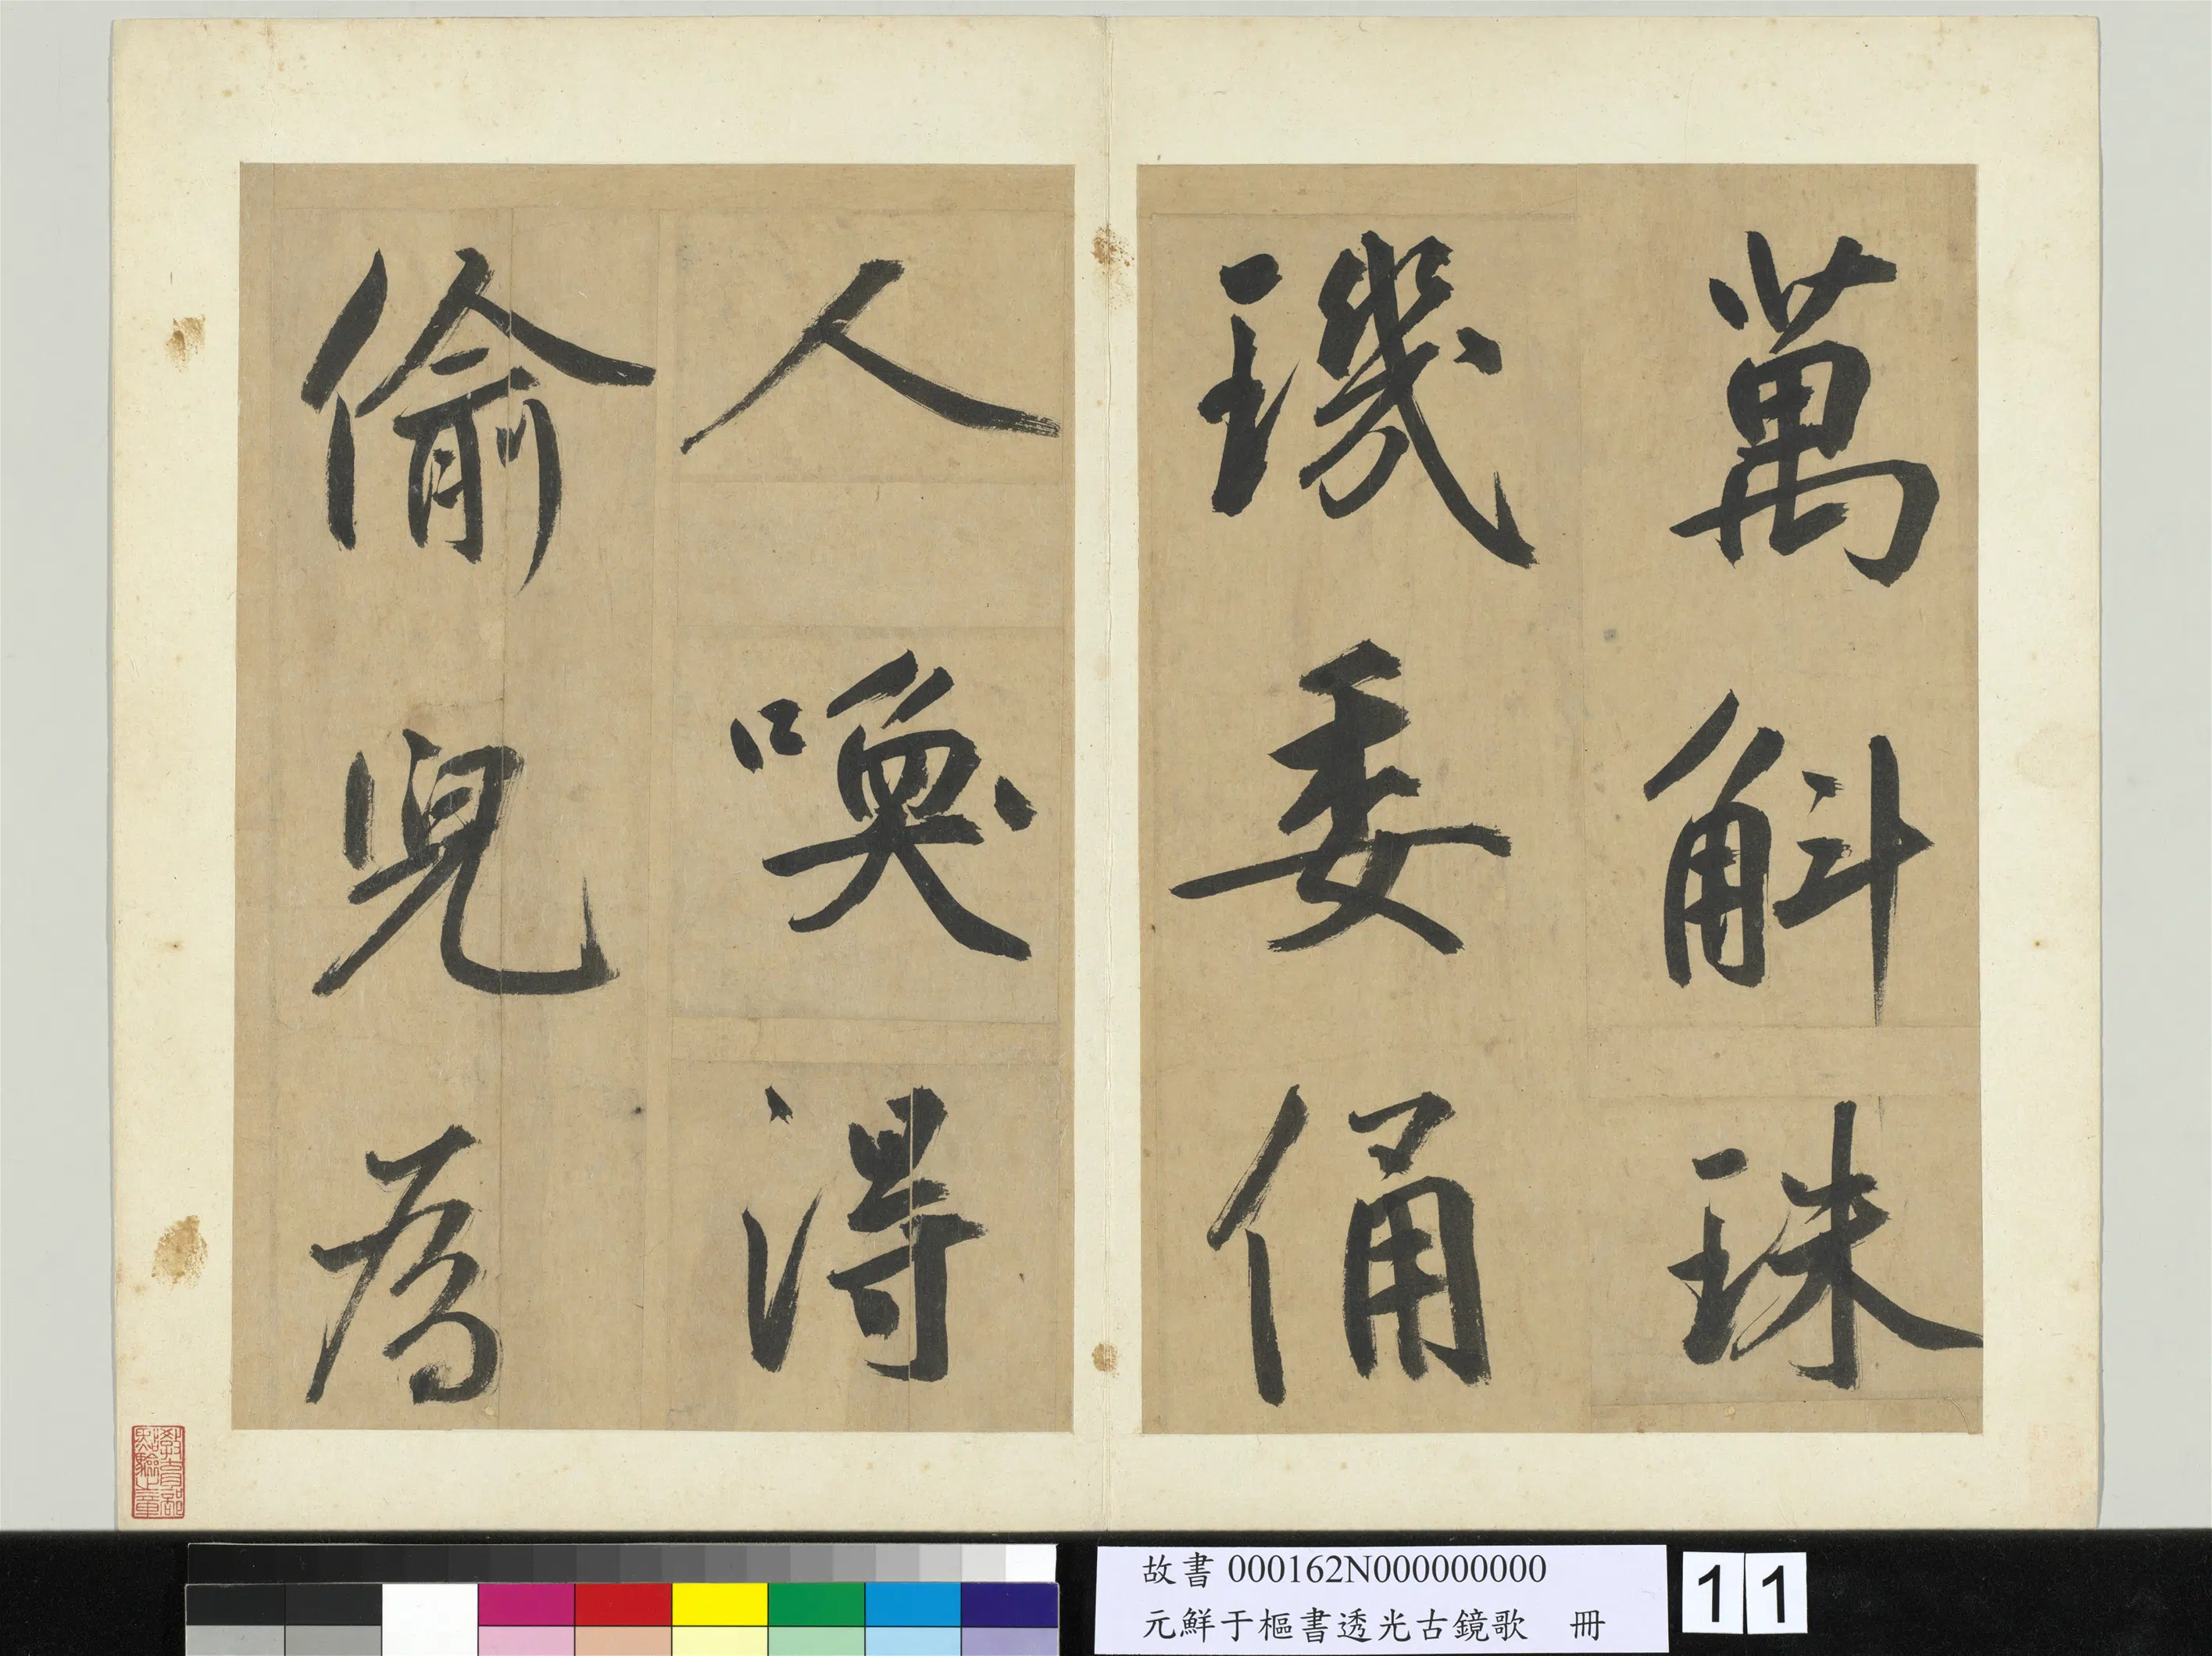 萬斛珠
璣委俑
人喚得
偷兒為
故書 000162N000000000
元鮮于樞書透光古鏡歌 冊
11